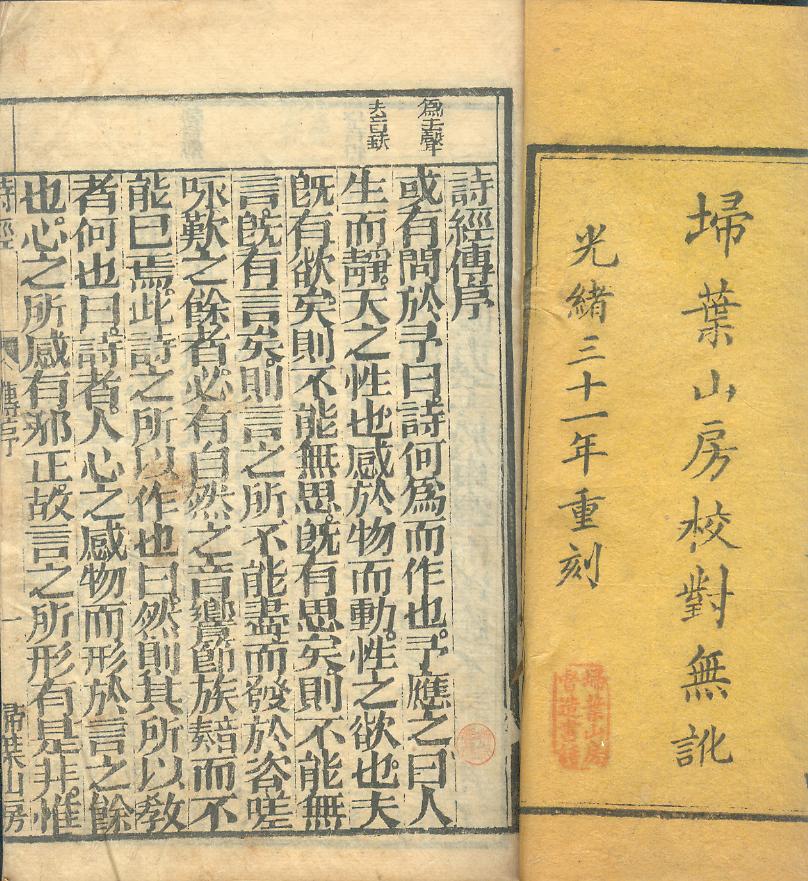 埽葉山房校對無訛
光緒三十一年重刻
埽葉山房
督造書籍
爲去聲
夫音
詩經傳序
或有問於予曰。詩何爲而作也。予應之曰。人
生而靜。天之性也。感於物而動。性之欲也。夫
旣有欲矣。則不能無思。旣有思矣。則不能無
言。旣有言矣。則言之所不能盡。而發於咨嗟
咏歎之餘者。必有自然之音響節族。而不
能已焉。此詩之所以作也。曰。然則其所以敎
者何也。曰。詩者。人心之感物而形於言之餘
也。心之所感有邪正。故言之所形有是非。惟
詩經 傳序 一 埽葉山房